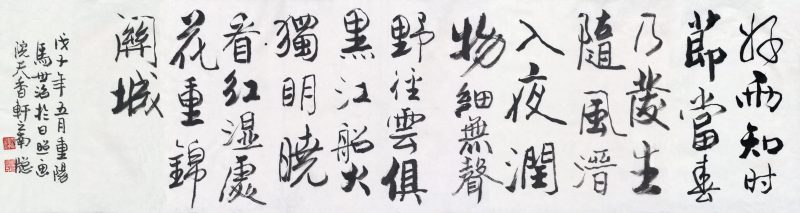 好雨知时
節當春
乃發生
隨風潛
入夜潤
物細無聲
野径雲俱
黑江船火
獨明曉
看红湿處
花重錦
關城
戊子年五月重陽
馬世治於日照画
院天香軒之南牕